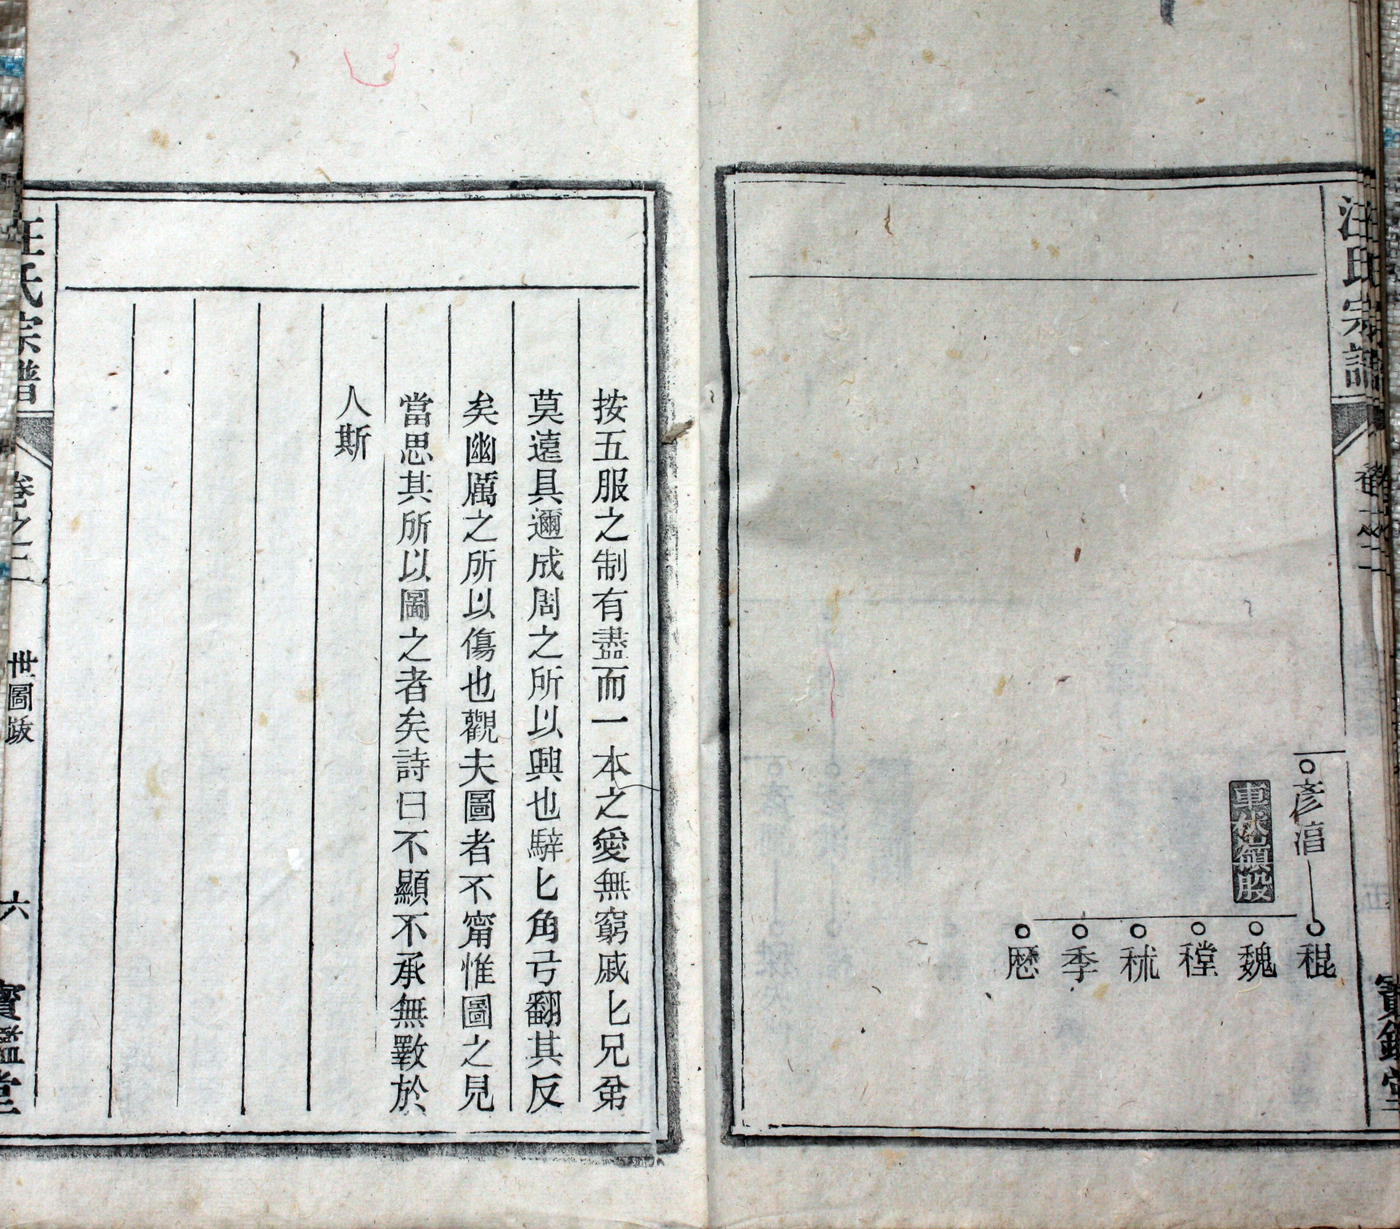 汪氏宗譜
卷之二
寶鑑堂
彥湻
車伏岺嶺股
稇
魏
䆸
秫
季
㦄
按五服之制有盡而一本之愛無窮戚匕兄弟
莫遠具邇成周之所以興也騂匕角弓翻其反
矣幽厲之所以傷也觀夫圖者不甯惟圖之見
當思其所以圖之者矣詩曰不顯不承無斁於
人斯
汪氏宗譜
卷之二
世圖跋
六
寶鑑堂